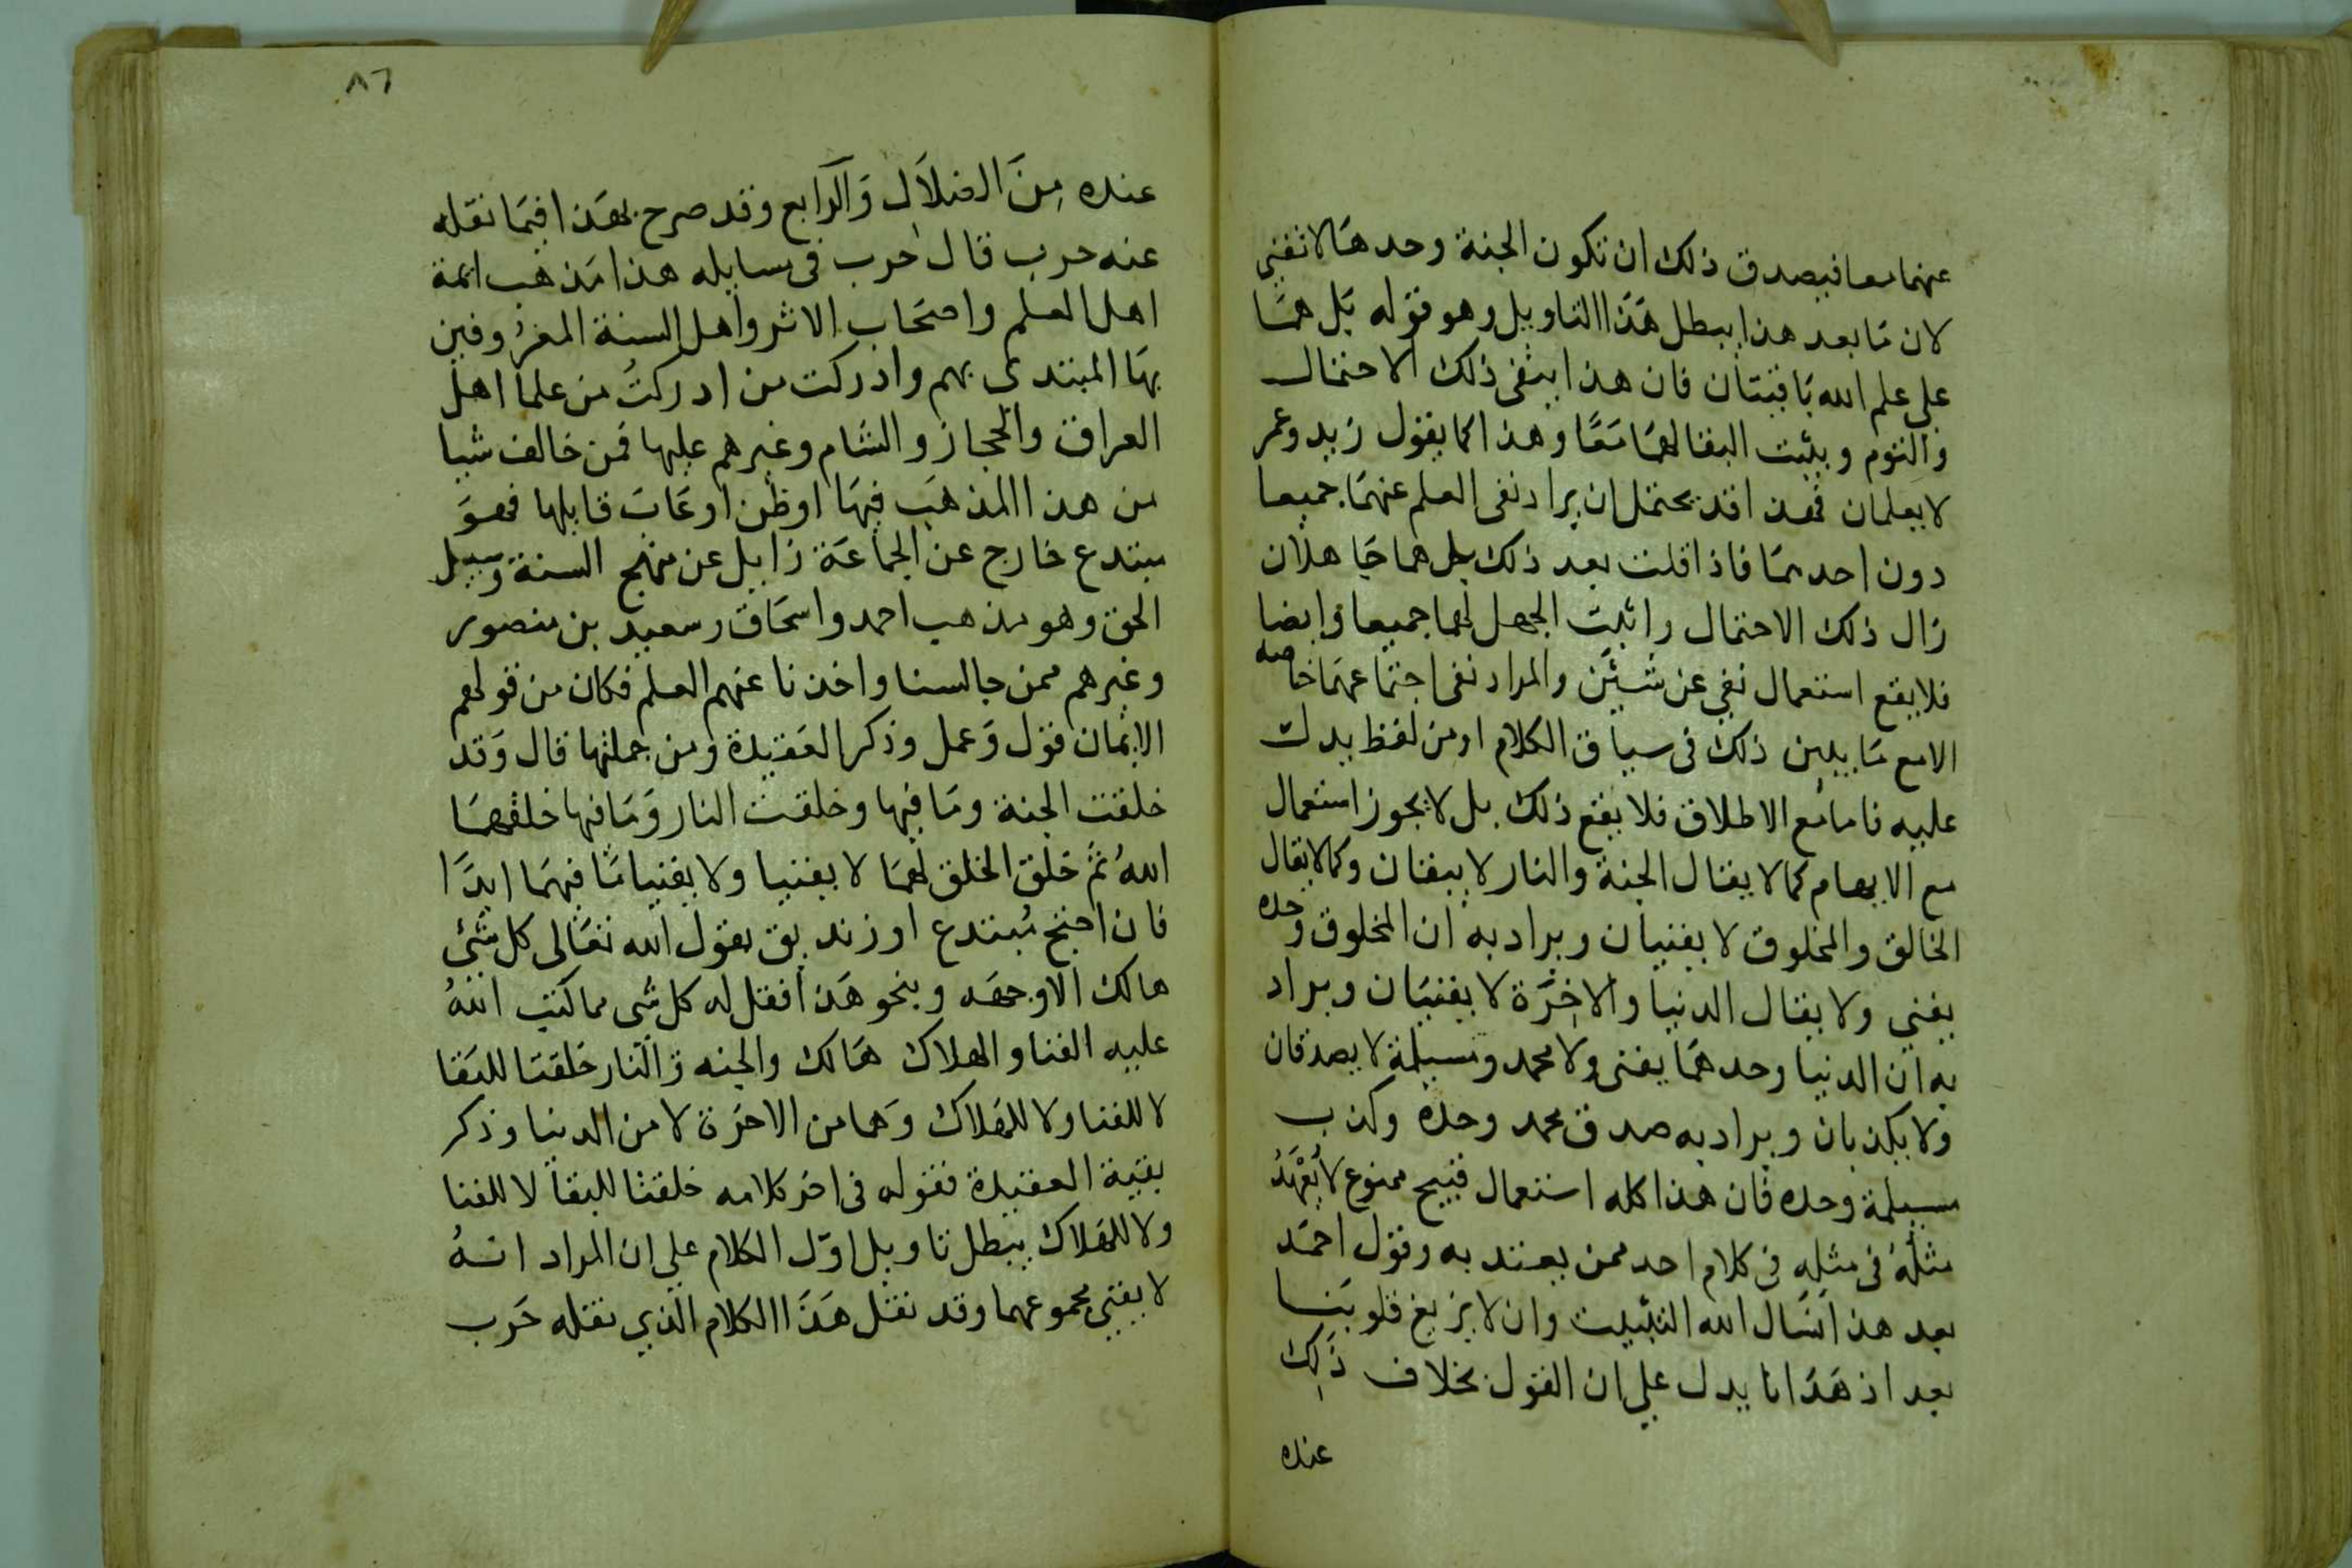 عنهما معا فيصدق ذلك ان تكون الجنة وحدها لا تفني
لان مَا بعد هذا يبطل هَذا التاويل وهو قوله بَل همَا
علي علم الله بَاقيتان فان هذا ينفى ذلك الاحتمال
والتوم ويثبت البقا لهمَا مَعًا وهذا كما يقول زيد وعمر
لا يعلمان فهذا قد يحتمل ان يراد نفى العلم عنهمَا جميعا
دون احدهمَا فاذا قلت بعد ذلك بل هما جَاهلان
زال ذلك الاحتمال واثبت الجهل لهما جميعا وايضا
فلا يقع استعمال نفي عن شيئين والمراد نفى اجتماعهمَا خاصه
الا مع مَا يبين ذلك فى سياق الكلام او من لفظ يدل
عليه فاما مع الاطلاق فلا يقع ذلك بل لا يجوز استعمال
مع الايهام كما لا يقال الجنة والنار لا يبقان وكما لا يقال
الخالق والمخلوق لا يفنيان ويراد به ان المخلوق وحده
يفني ولا يقال الدنيا والاخِرَة لا يفنيَان ويراد
به ان الدنيا وحدهَا يفنى ولا محمد ومسيلمة لا يصدقان
ولا يكذبان ويراد به صدق محمد وحده وكذب
مسيلمة وحده فان هذا كله استعمال قبيح ممنوع لا يُعْهَدُ
مثلُهُ فى مثلِه فى كلام احد ممن يعتد به وقول احمَد
بعد هذا نسَال الله التثبيت وان لا يزيغ قلوبنَا
بعد اذ هَدَانا يدل علي ان القول بخلاف ذَلِك
عنده
٨٦
عنده مِنَ الضلاَلِ وَالرَابع وقد صرح بهَذا فيمَا نقله
عنه حرب قال حرب فى مسايله هذا مَذهب ايمة
اهل العلم واصحَاب الاثر واهل السنة المعرُوفين
بهَا المقتدى بهم وادركت من ادركتُ من علما اهل
العراق والحجاز والشام وغيرهم عليها فمن خالف شيا
من هذا المذهَب فيهَا او طَعن او عَابَ قايلها فهوَ
مبتدع خارج عن الجمَاعَة زايل عن منهج السنة وسبيل
الحق وهو مذهب احمد واسحَاق وسعيد بن منصور
وغيرهم ممن جالسنا واخذنا عنهم العلم فكان من قولهم
الايمَان قول وَعمل وذكر العَقيدة ومن جملتها قال وَقد
خلقت الجنة ومَا فيها وخلقت النار وَمَا فيها خلقهمَا
اللهُ ثم خَلق الخلق لهمَا لا يفنيا ولا يفنيا مَا فيهمَا ابدًا
فان احتج مُبتدع او زنديق بقول الله تعَالى كل شئ
هالك الا وجهه وبنحو هَذا فقل له كل شى مما كتب اللهُ
عليه الفنا والهلاك هَالك والجنه وَالنار خلقتا للبَقا
لا للفنا ولا للهَلاك وَهما من الاخرَة لا من الدنيا وذكر
بقية العقيدة فقوله فى اخر كلامه خلقتا للبقا لا للفنا
ولا للهَلاك يبطل تاويل اوّل الكلام علي ان المراد انهُ
لا يفني مجموعهما وقد نقل هَذا الكلام الذي نقله حَرب